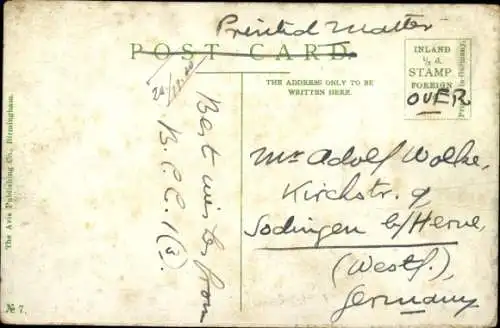 Printed Matter
POST CARD.
THE ADDRESS ONLY TO BE
WRITTEN HERE.
INLAND
½ d.
STAMP
FOREIGN
OVER
Printed in Germany.
The Avis Publishing Co., Birmingham.
№ 7.
Best wishes from
B.C.C. 1(3)
Mr Adolf Wolke,
Kirchstr. 9
Sodingen b/Herne,
(Westf.),
Germany